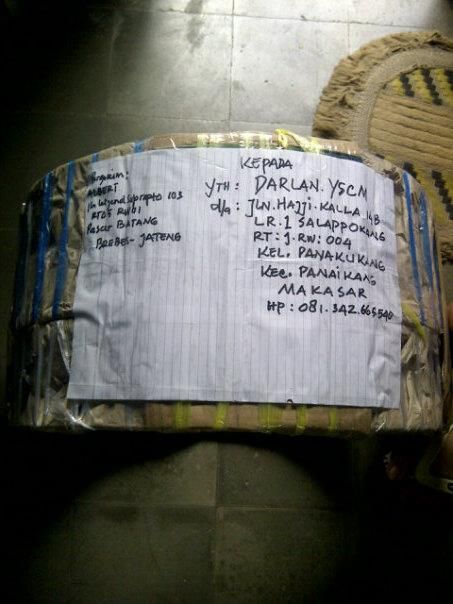 Pengirim:
ALBERT
Jln Letjend Suprapto 103
RT05 RW01
Pasar BATANG
BREBES - JATENG
KEPADA
YTH : DARLAN. Y5CM
d/a : JLN. HAJJI. KALLA
LR. 1 SALAPPOKANG
RT: J. RW: 004
KEL. PANAKUKANG
KEC. PANAIKANG
MAKASAR
HP : 081.342.665540